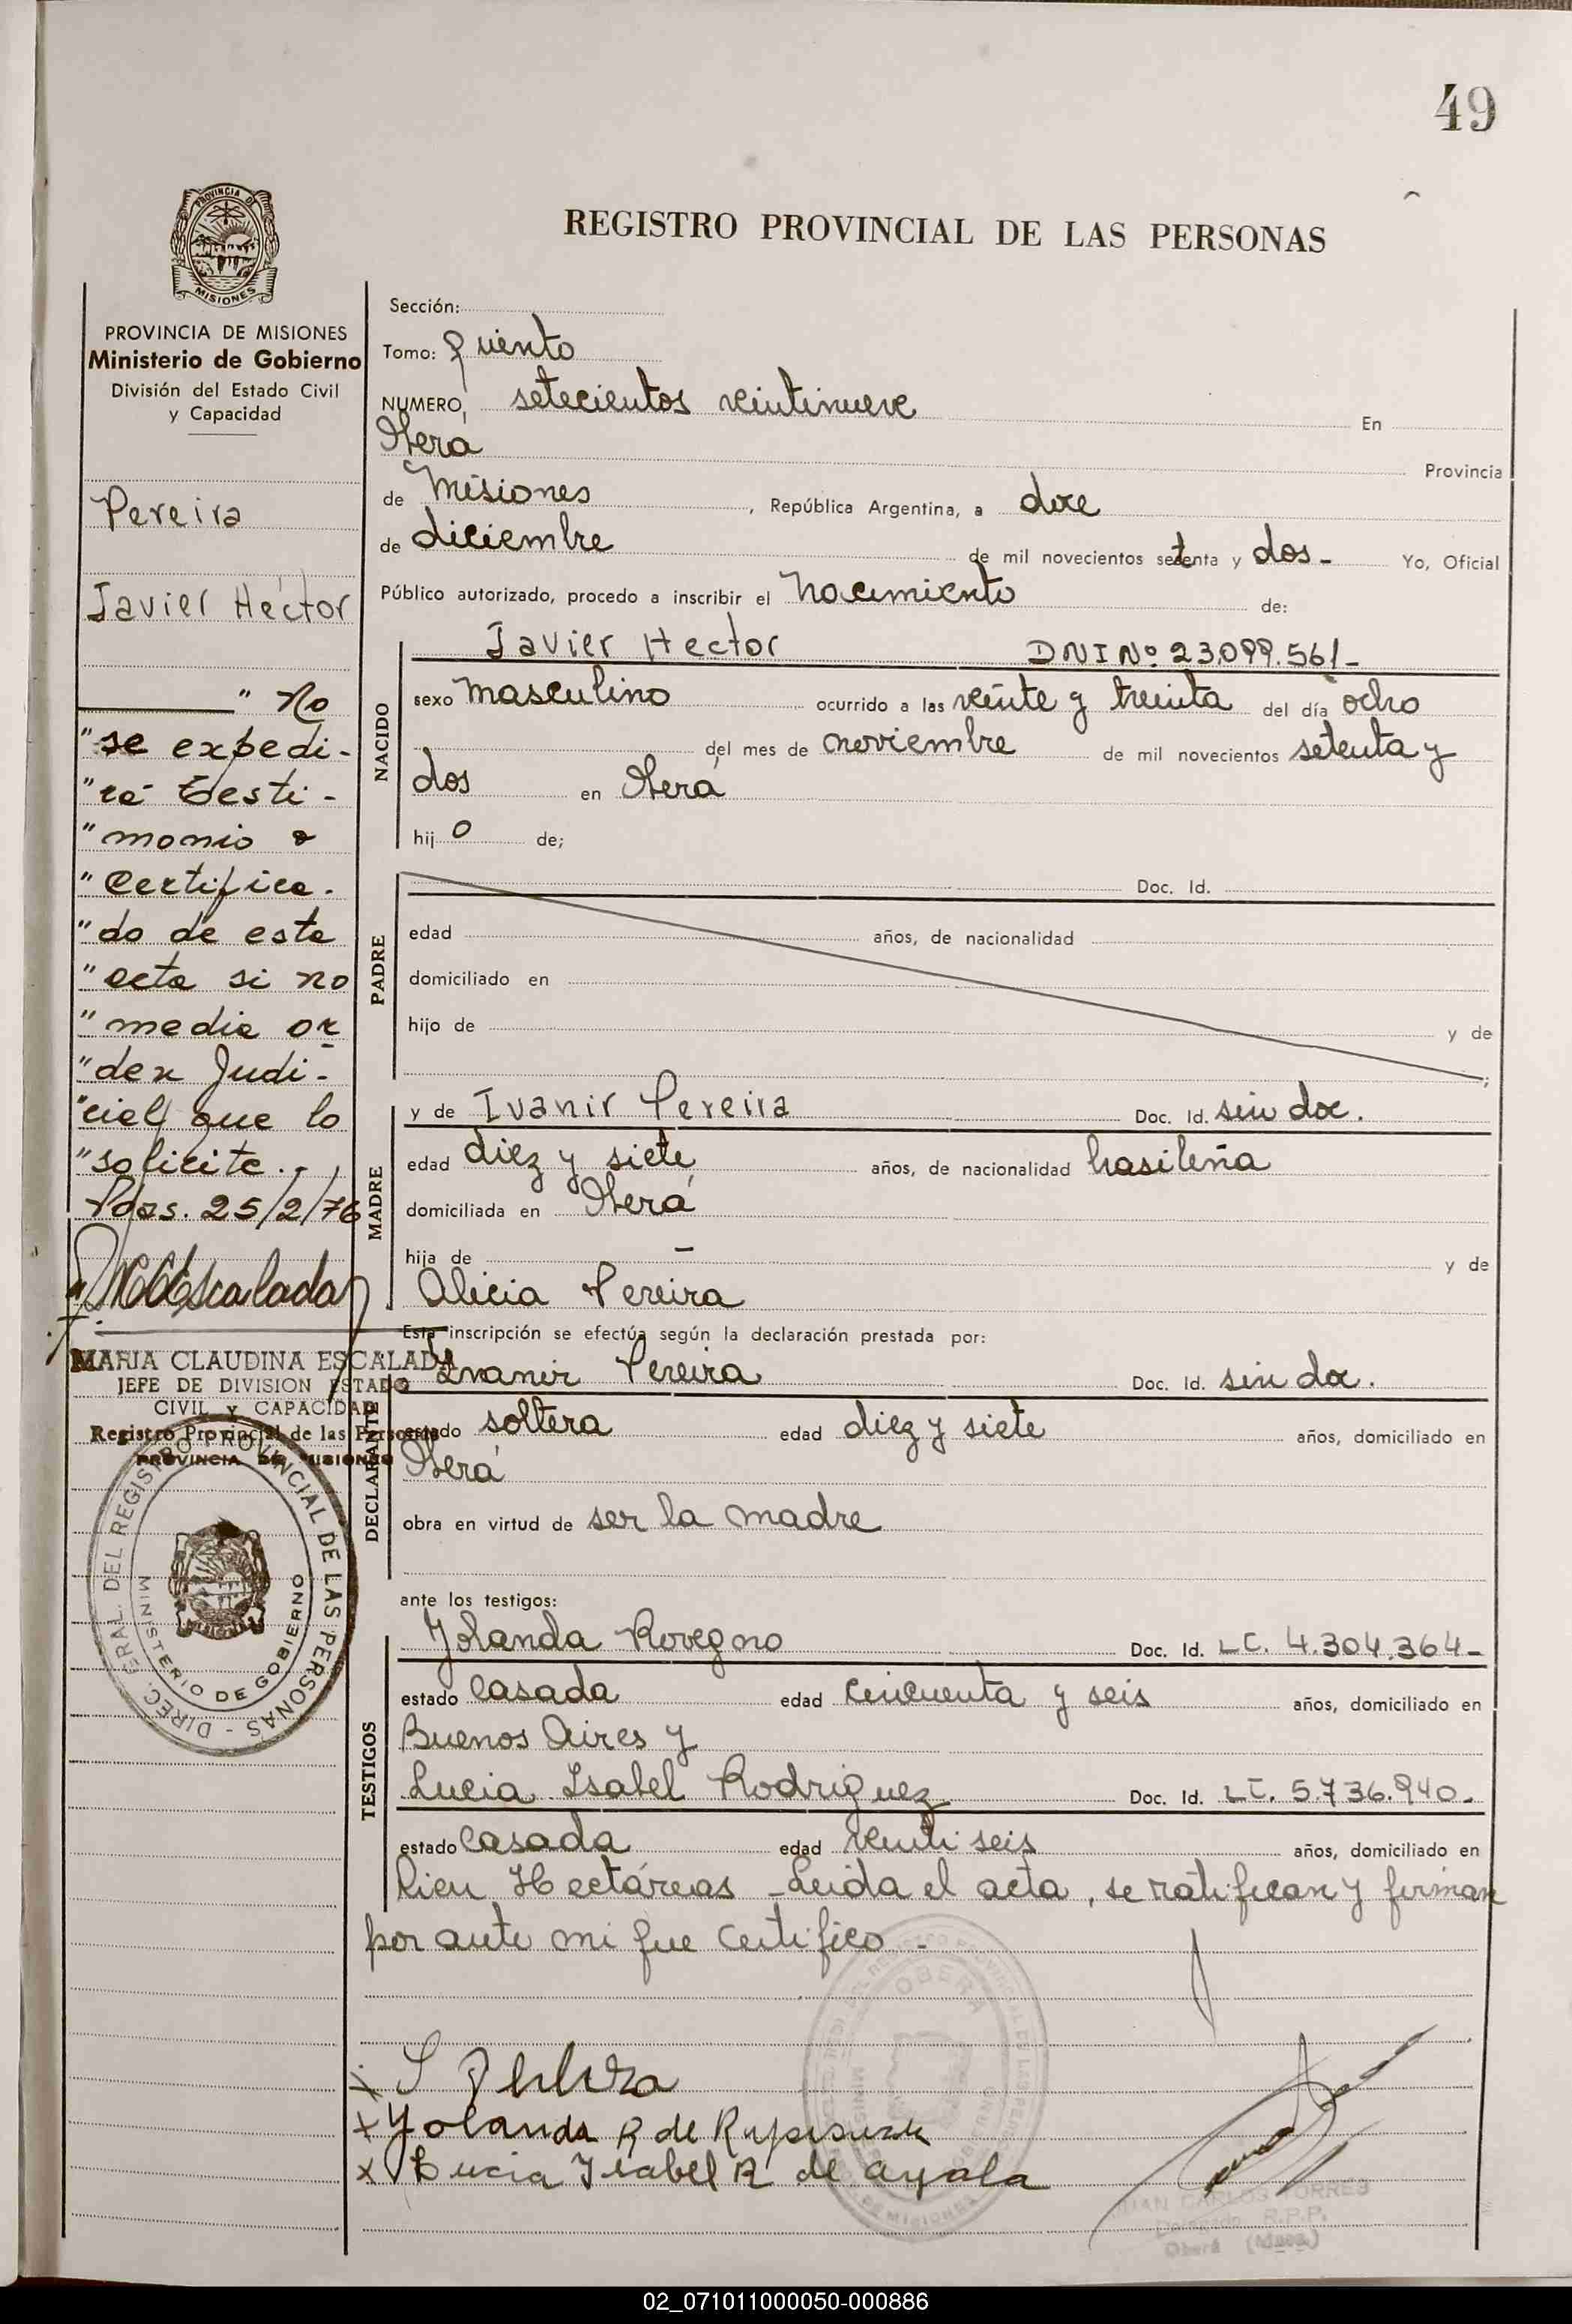 49
PROVINCIA DE
MISIONES
REGISTRO PROVINCIAL DE LAS PERSONAS
PROVINCIA DE MISIONES
Ministerio de Gobierno
División del Estado Civil
y Capacidad
Pereira
Javier Hector
" No
" se expedi-
" rá testi-
" monio o
" certifica-
" do de esta
" acta si no
" media or
" den Judi-
" cial que lo
" solicite.-
Pdas. 25/2/76
MCEscalada
MARIA CLAUDINA ESCALADA
JEFE DE DIVISION ESTADO
CIVIL Y CAPACIDAD
Registro Provincial de las Personas
PROVINCIA DE MISIONES
DIREC. GRAL. DEL REGISTRO PROVINCIAL DE LAS PERSONAS -
MINISTERIO DE GOBIERNO
Sección:
Tomo: Quinto
NUMERO, setecientos veintinueve En
Oberá Provincia
de Misiones , República Argentina, a doce
de diciembre de mil novecientos setenta y dos - Yo, Oficial
Público autorizado, procedo a inscribir el Nacimiento de:
NACIDO
Javier Hector DNI Nº 23.099.561-
sexo masculino ocurrido a las veinte y treinta del día ocho
del mes de noviembre de mil novecientos setenta y
dos en Oberá
hij o de;
PADRE
Doc. Id.
edad años, de nacionalidad
domiciliado en
hijo de y de
;
MADRE
y de Ivanir Pereira Doc. Id. sin doc.
edad diez y siete años, de nacionalidad brasileña
domiciliada en Oberá
hija de - y de
Alicia Pereira
Esta inscripción se efectúa según la declaración prestada por:
DECLARANTE
Ivanir Pereira Doc. Id. sin doc.
estado soltera edad diez y siete años, domiciliado en
Oberá
obra en virtud de ser la madre
ante los testigos:
TESTIGOS
Yolanda Rovegno Doc. Id. LC. 4.304.364-
estado casada edad cincuenta y seis años, domiciliado en
Buenos Aires y
Lucia Isabel Rodriguez Doc. Id. LC. 5.736.940-
estado casada edad veinti seis años, domiciliado en
Cien Hectáreas - Leida el acta, se ratifican y firman
por ante mi que certifico -
OBERA
Yolanda R de
Lucia Ysabel R de ayala
JUAN CARLOS TORRES
Delegado R.P.P.
Oberá (Mnes)
02_071011000050-000886